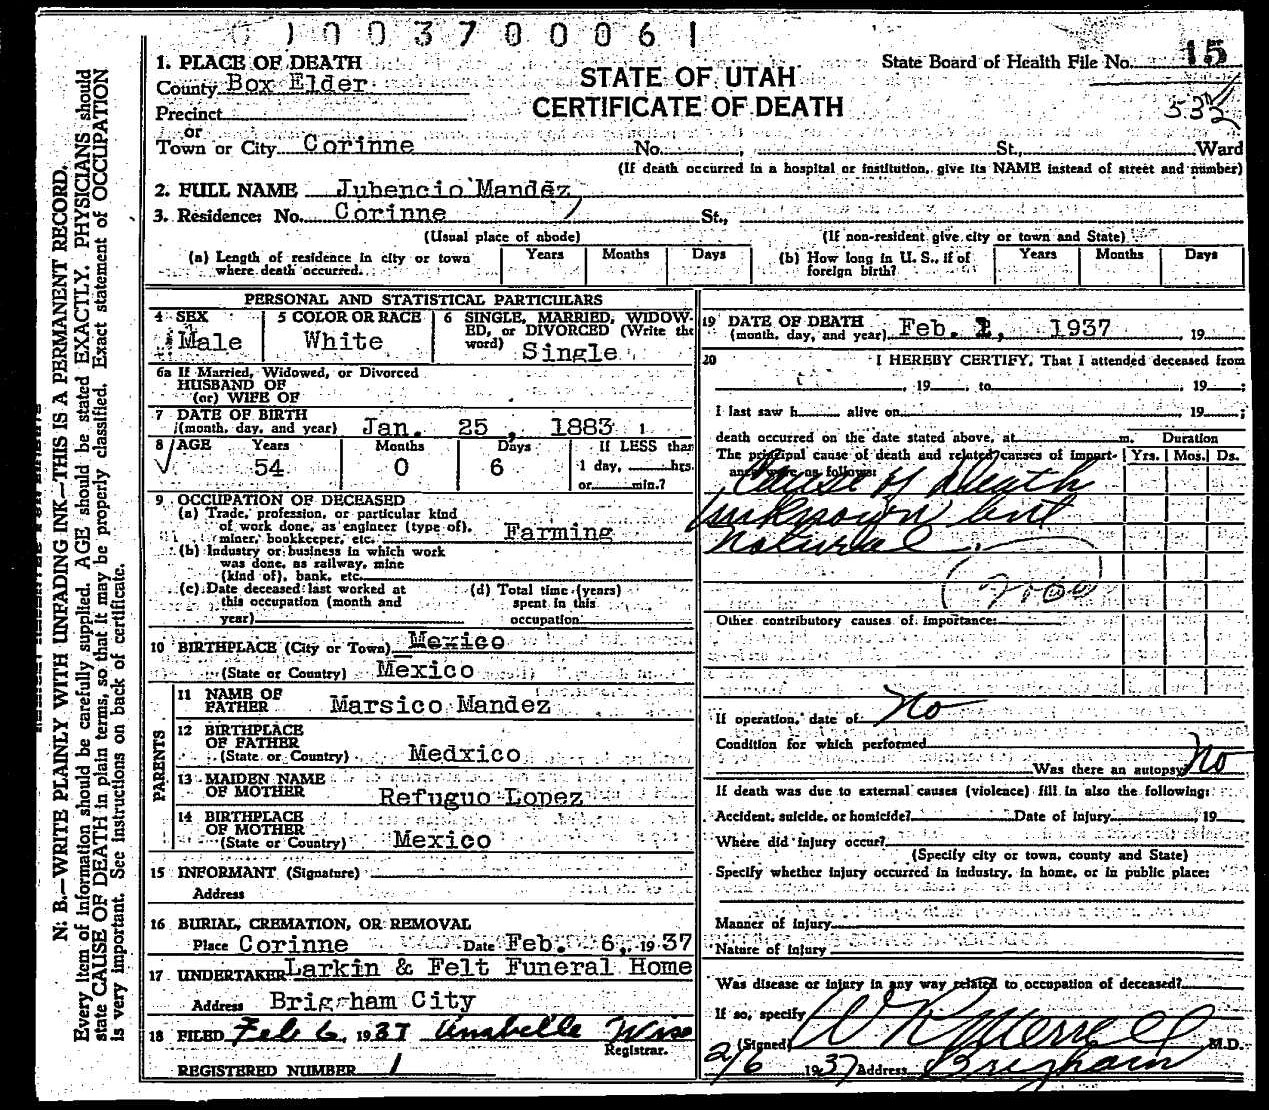 01003700061
1. PLACE OF DEATH
County Box Elder
Precinct
or
Town or City Corinne No. , St., Ward
STATE OF UTAH
CERTIFICATE OF DEATH
State Board of Health File No. 15
(If death occurred in a hospital or institution, give its NAME instead of street and number)
2. FULL NAME Jubencio Mandez
3. Residence: No. Corinne St.,
(Usual place of abode) (If non-resident give city or town and State)
(a) Length of residence in city or town where death occurred. Years Months Days
(b) How long in U. S., if of foreign birth? Years Months Days
PERSONAL AND STATISTICAL PARTICULARS
4 SEX
Male
5 COLOR OR RACE
White
6 SINGLE, MARRIED, WIDOW-
ED, or DIVORCED (Write the
word) Single
6a If Married, Widowed, or Divorced
HUSBAND OF
(or) WIFE OF
7 DATE OF BIRTH
(month, day, and year) Jan. 25, 1883
8 AGE Years Months Days If LESS than
54 0 6 1 day, hrs.
or min.?
9 OCCUPATION OF DECEASED
(a) Trade, profession, or particular kind
of work done, as engineer (type of),
miner, bookkeeper, etc. Farming
(b) Industry or business in which work
was done, as railway, mine
(kind of), bank, etc.
(c) Date deceased last worked at
this occupation (month and
year)
(d) Total time (years)
spent in this
occupation
10 BIRTHPLACE (City or Town) Mexico
(State or Country) Mexico
PARENTS
11 NAME OF
FATHER Marsico Mandez
12 BIRTHPLACE
OF FATHER
(State or Country) Medxico
13 MAIDEN NAME
OF MOTHER Refuguo Lopez
14 BIRTHPLACE
OF MOTHER
(State or Country) Mexico
15 INFORMANT (Signature)
Address
16 BURIAL, CREMATION, OR REMOVAL
Place Corinne Date Feb. 6, 1937
17 UNDERTAKER Larkin & Felt Funeral Home
Address Brigham City
18 FILED Feb 6, 1937 Anabelle Wise
Registrar.
REGISTERED NUMBER 1
19 DATE OF DEATH
(month, day, and year) Feb. 1, 1937 19
20 I HEREBY CERTIFY, That I attended deceased from
, 19 , to , 19 ;
I last saw h alive on 19 ;
death occurred on the date stated above, at m. Duration
The principal cause of death and related causes of import- Yrs. Mos. Ds.
ance were as follows:
Cause of Death
unknown but
natural.
(200)
Other contributory causes of importance:
If operation, date of No
Condition for which performed
Was there an autopsy No
If death was due to external causes (violence) fill in also the following:
Accident, suicide, or homicide? Date of injury , 19
Where did injury occur?
(Specify city or town, county and State)
Specify whether injury occurred in industry, in home, or in public place:
Manner of injury
Nature of injury
Was disease or injury in any way related to occupation of deceased?
If so, specify
(Signed) W R Merrell M.D.
2/6 1937 Address Brigham
N. B.—WRITE PLAINLY WITH UNFADING INK—THIS IS A PERMANENT RECORD.
Every item of information should be carefully supplied. AGE should be stated EXACTLY. PHYSICIANS should
state CAUSE OF DEATH in plain terms, so that it may be properly classified. Exact statement of OCCUPATION
is very important. See instructions on back of certificate.